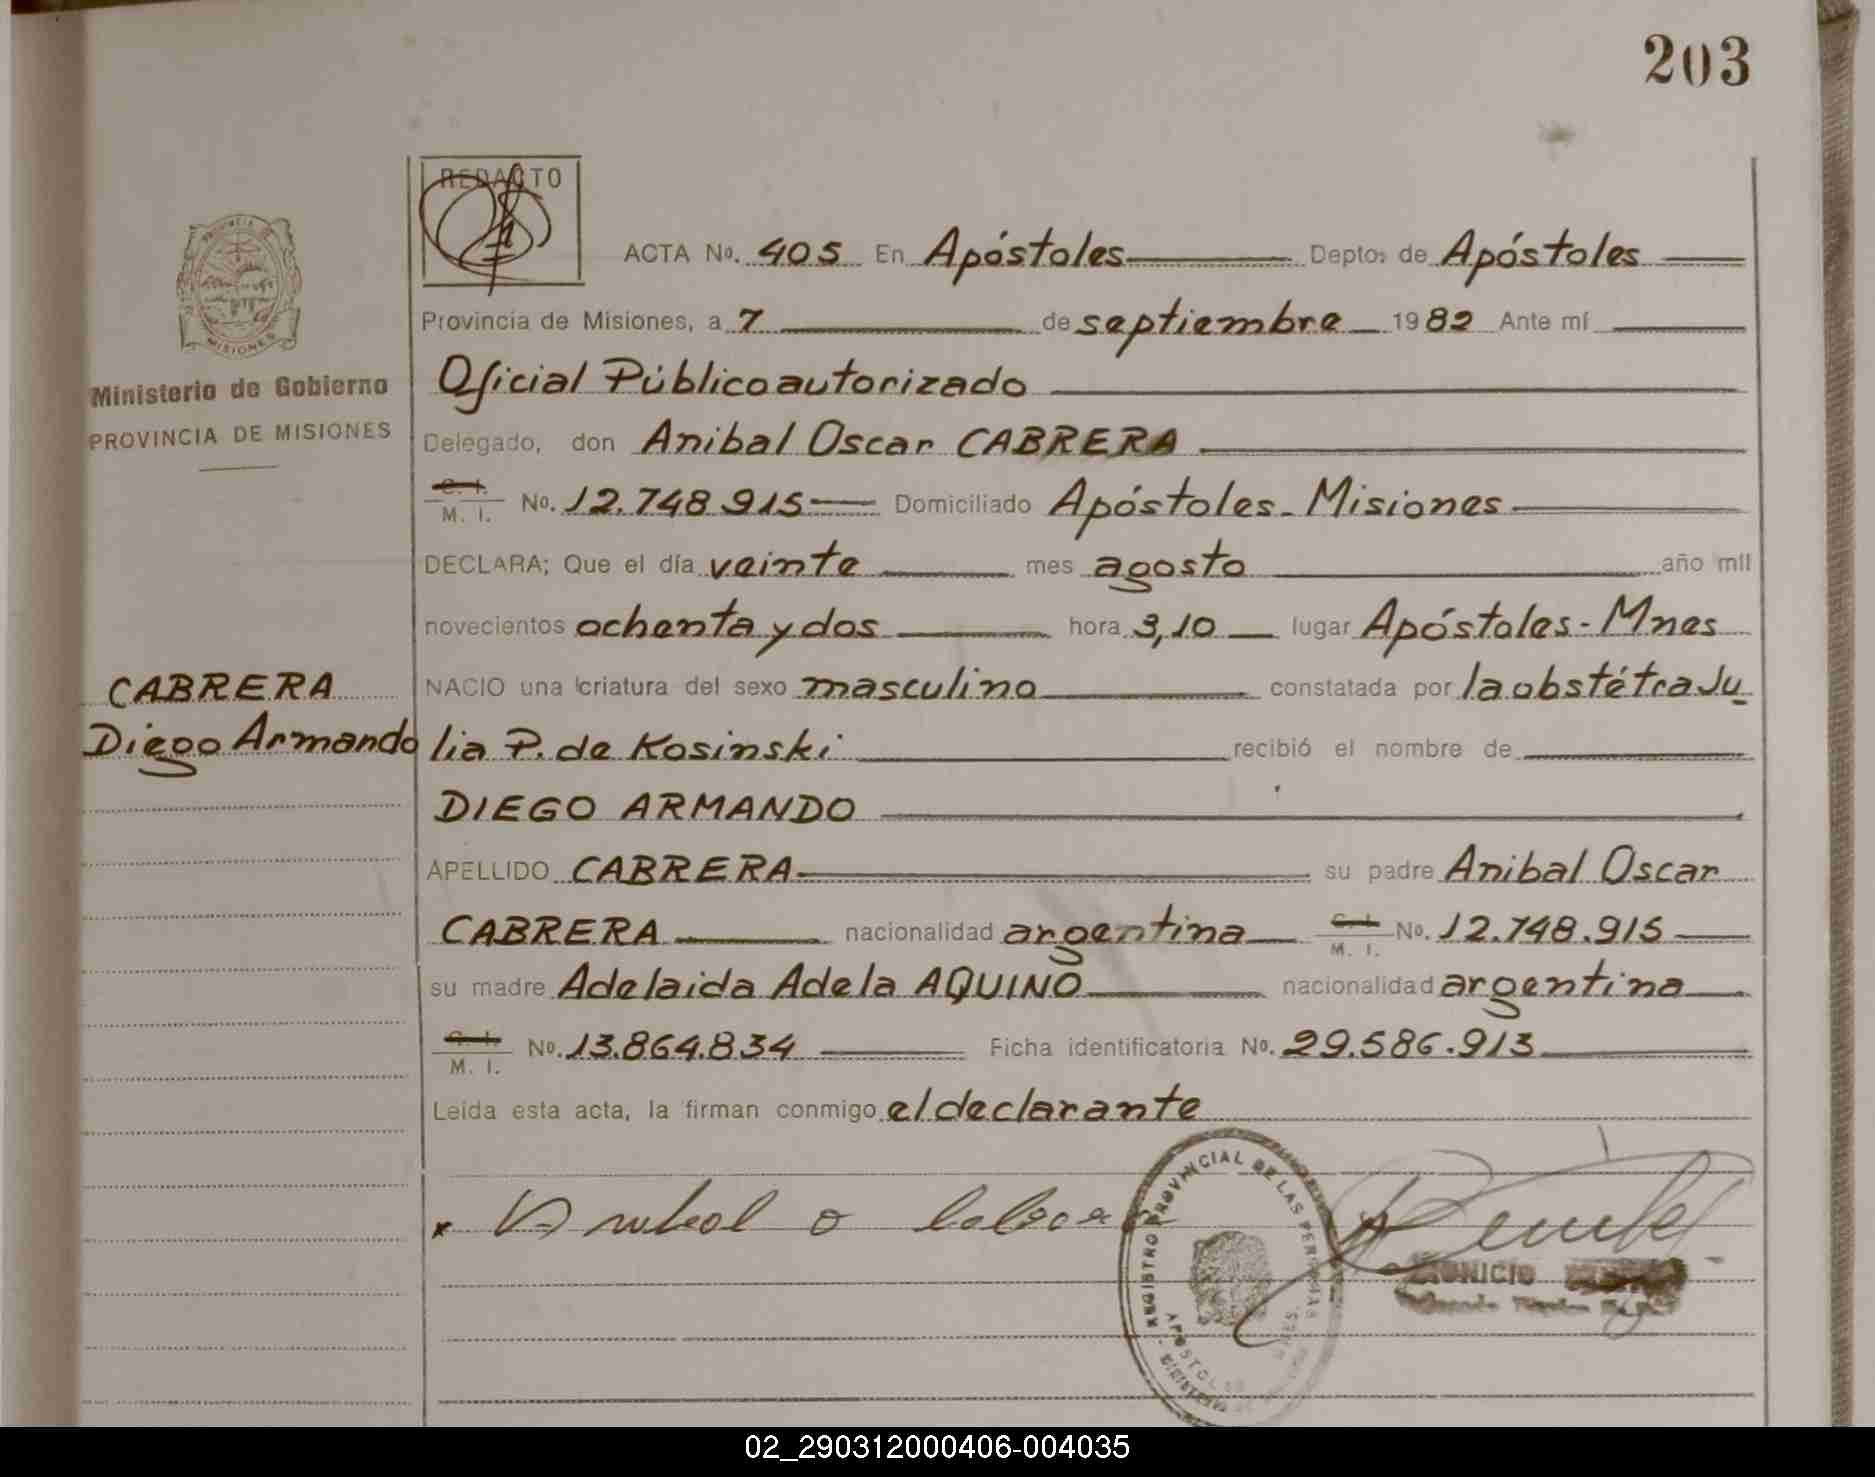 203
REDACTO
ACTA No. 405 En Apóstoles Depto. de Apóstoles
Provincia de Misiones, a 7 de septiembre 1982 Ante mí
Oficial Público autorizado
Delegado, don Anibal Oscar CABRERA
C. I. M. I. No. 12.748.915 Domiciliado Apóstoles - Misiones
DECLARA; Que el día veinte mes agosto año mil
novecientos ochenta y dos hora 3,10 lugar Apóstoles - Mnes
NACIO una criatura del sexo masculino constatada por la obstétra Ju
lia P. de Kosinski recibió el nombre de
DIEGO ARMANDO
APELLIDO CABRERA su padre Anibal Oscar
CABRERA nacionalidad argentina C. I. M. I. No. 12.748.915
su madre Adelaida Adela AQUINO nacionalidad argentina
C. I. M. I. No. 13.864.834 Ficha identificatoria No. 29.586.913
Leída esta acta, la firman conmigo el declarante
PROVINCIA DE
MISIONES
Ministerio de Gobierno
PROVINCIA DE MISIONES
CABRERA
Diego Armando
REGISTRO PROVINCIAL DE LAS PERSONAS
APOSTOLES
02_290312000406-004035